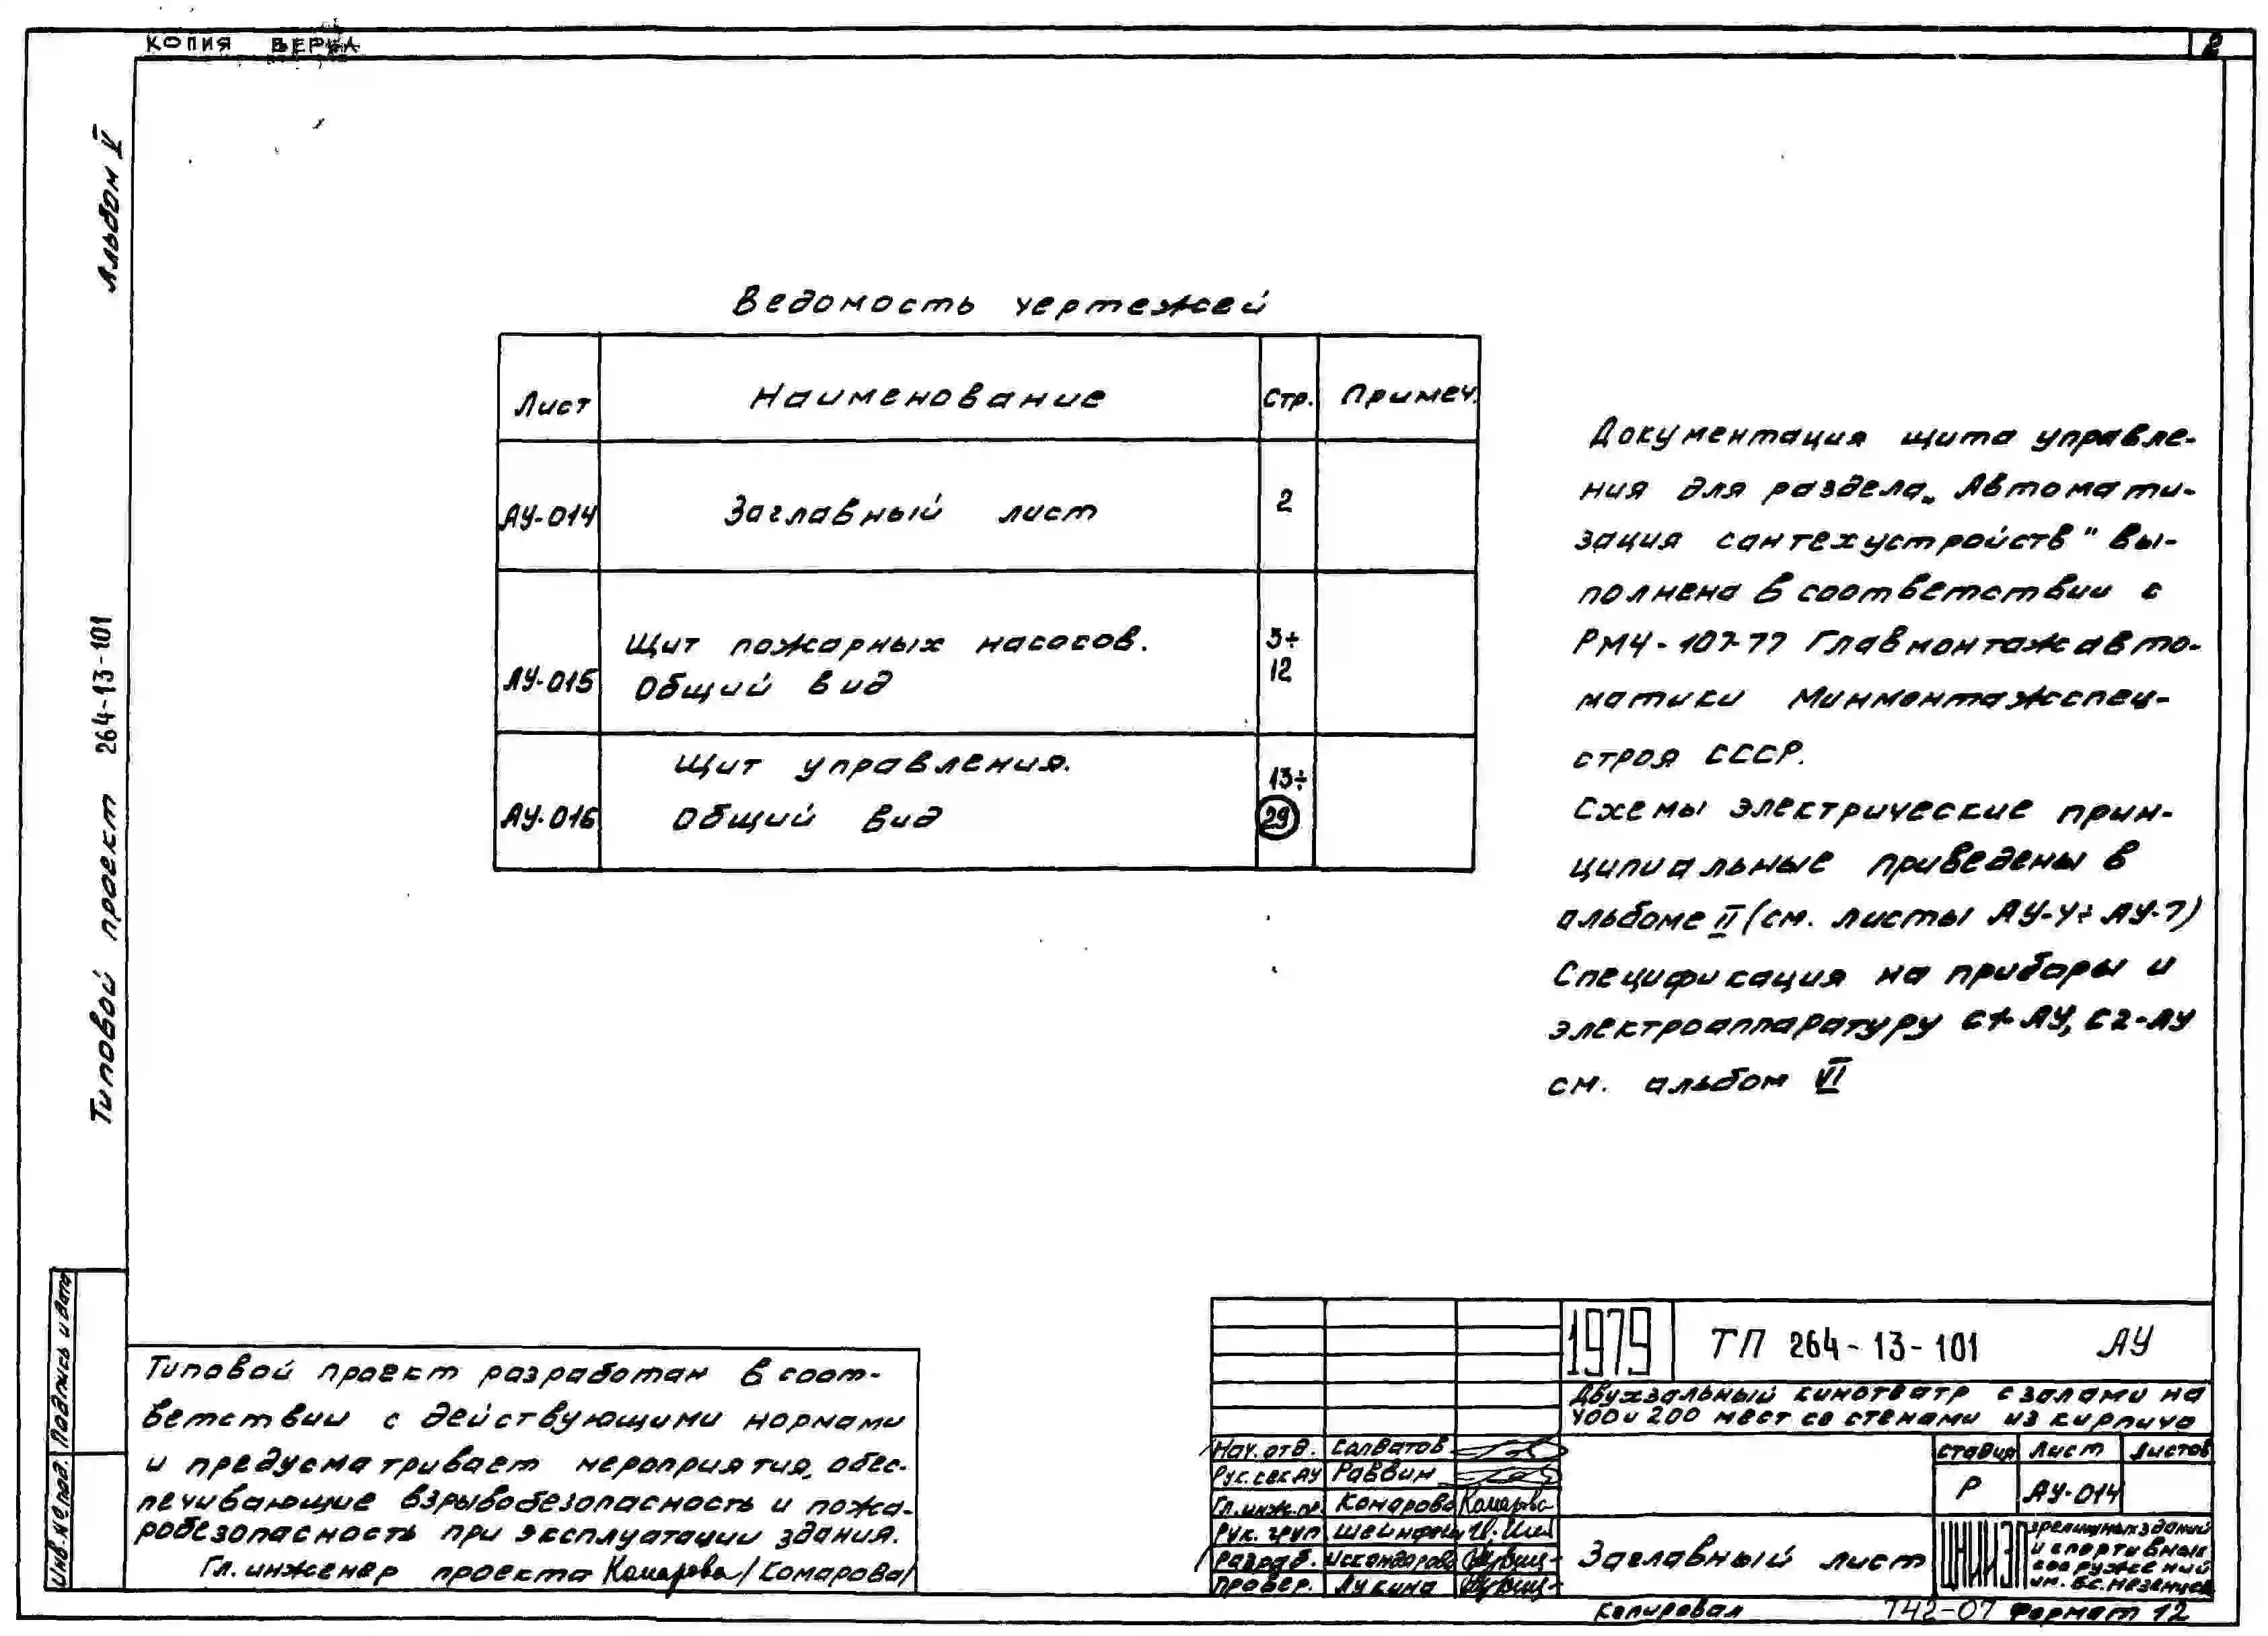 КОПИЯ ВЕРНА
2
Альбом V
Типовой проект 264-13-101
Ведомость чертежей
Лист Наименование Стр. Примеч.
АУ-014 Заглавный лист 2
АУ-015 Щит пожарных насосов. Общий вид 3÷12
АУ-016 Щит управления. Общий вид 13÷29
Документация щита управле-
ния для раздела „Автомати-
зация сантехустройств" вы-
полнена в соответствии с
РМ4-107-77 Главмонтажавто-
матики Минмонтажспец-
строя СССР.
Схемы электрические прин-
ципиальные приведены в
альбоме II (см. листы АУ-4÷АУ-7)
Спецификация на приборы и
электроаппаратуру С1-АУ, С2-АУ
см. альбом VI
Инв. № подл. Подпись и дата
Типовой проект разработан в соот-
ветствии с действующими нормами
и предусматривает мероприятия, обес-
печивающие взрывобезопасность и пожа-
робезопасность при эксплуатации здания.
Гл. инженер проекта Комарова /Комарова/
1979 ТП 264-13-101 АУ
Двухзальный кинотеатр с залами на
400 и 200 мест со стенами из кирпича
Нач. отд. Солватов
Рук. сек АУ Раввин
Гл. инж. пр. Комарова Комарова
Рук. груп Шейнфейн
Разраб. Искандарова
Провер. Лукина
Стадия Лист Листов
Р АУ-014
Заглавный лист
ЦНИИЭП зрелищных зданий
и спортивных
сооружений
им. Б.С. Мезенцева
Копировал 742-07 Формат 12